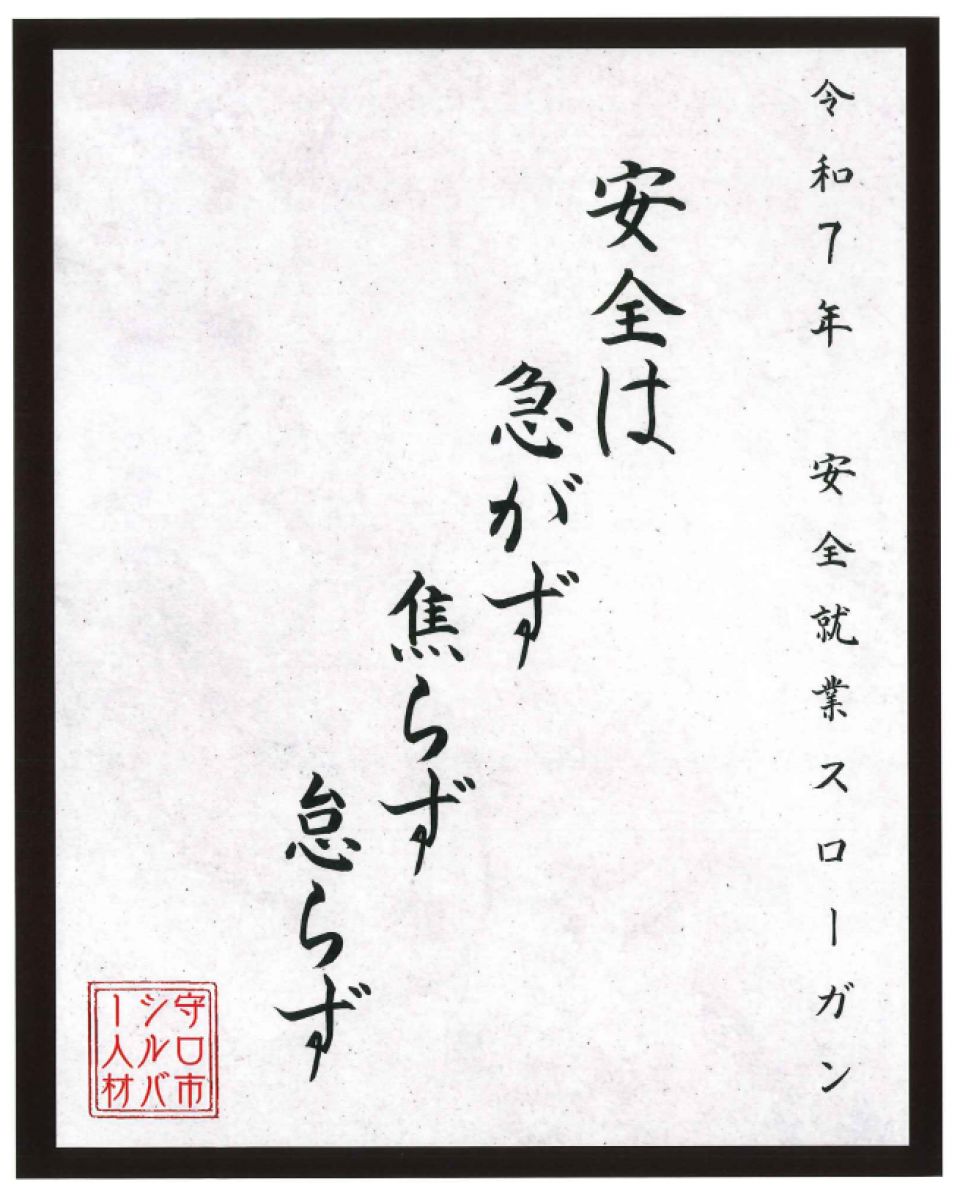 令和7年 安全就業スローガン
安全は
急がず
焦らず
怠らず
守口市
シルバ
ー人材